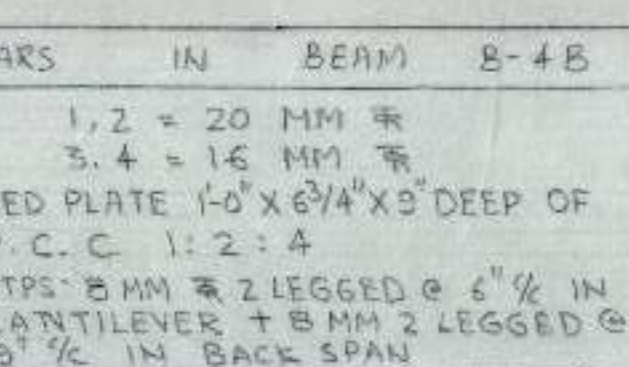 ARS IN BEAM B-4B
1,2 = 20 MM
3.4 = 16 MM
ED PLATE 1'-0" X 6 3/4" X 9" DEEP OF
. C. C 1:2:4
TPS- 8 MM 2 LEGGED @ 6" c/c IN
ANTILEVER + 8 MM 2 LEGGED @
9" c/c IN BACK SPAN